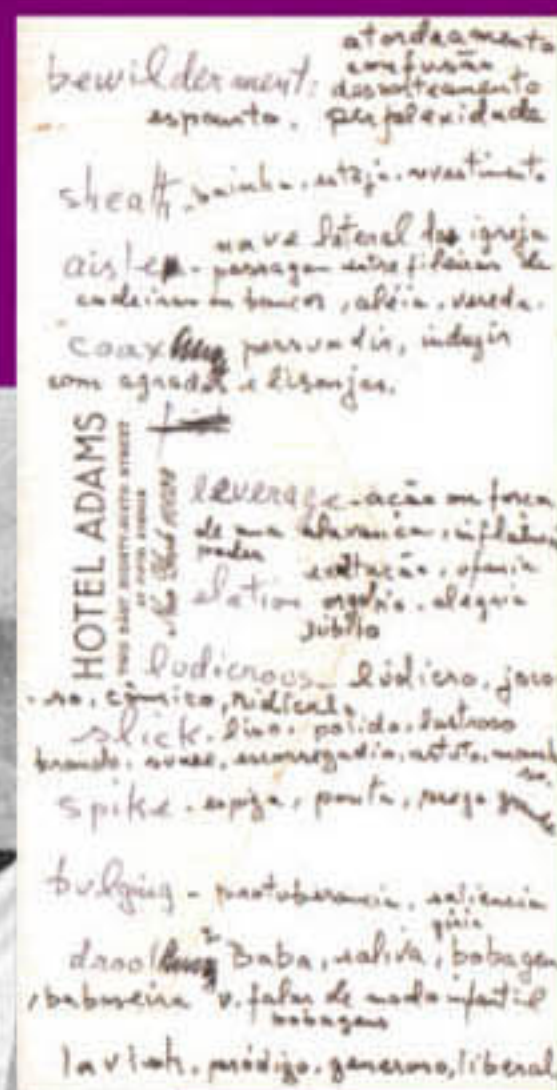 atordoamento
bewilderment: confusão
desnorteamento
espanto. perplexidade
sheath. bainha. estojo. revestimento
nave lateral da igreja
aisle - passagem entre fileiras de
cadeiras ou bancos, aléia. vereda.
coax persuadir, induzir
com agrados e lisonjas.
HOTEL ADAMS
TWO EAST EIGHTY-SIXTH STREET
AT FIFTH AVENUE
New York 10028
leverage - ação ou força
de uma alavanca, influência
poder
exultação, ufania
elation orgulho. alegria
júbilo
ludicroos - lúdicro. joco
-so, cômico, ridículo
slick. liso. polido. lustroso
brando. suave. escorregadio. astuto. manh
so.
spike. espiga, ponta, prego
bulging - protuberancia. saliencia
gíria
drool Baba, saliva, bobagem
, baboseira v. falar de modo infantil
bobagens
lavish. pródigo. generoso, liberal